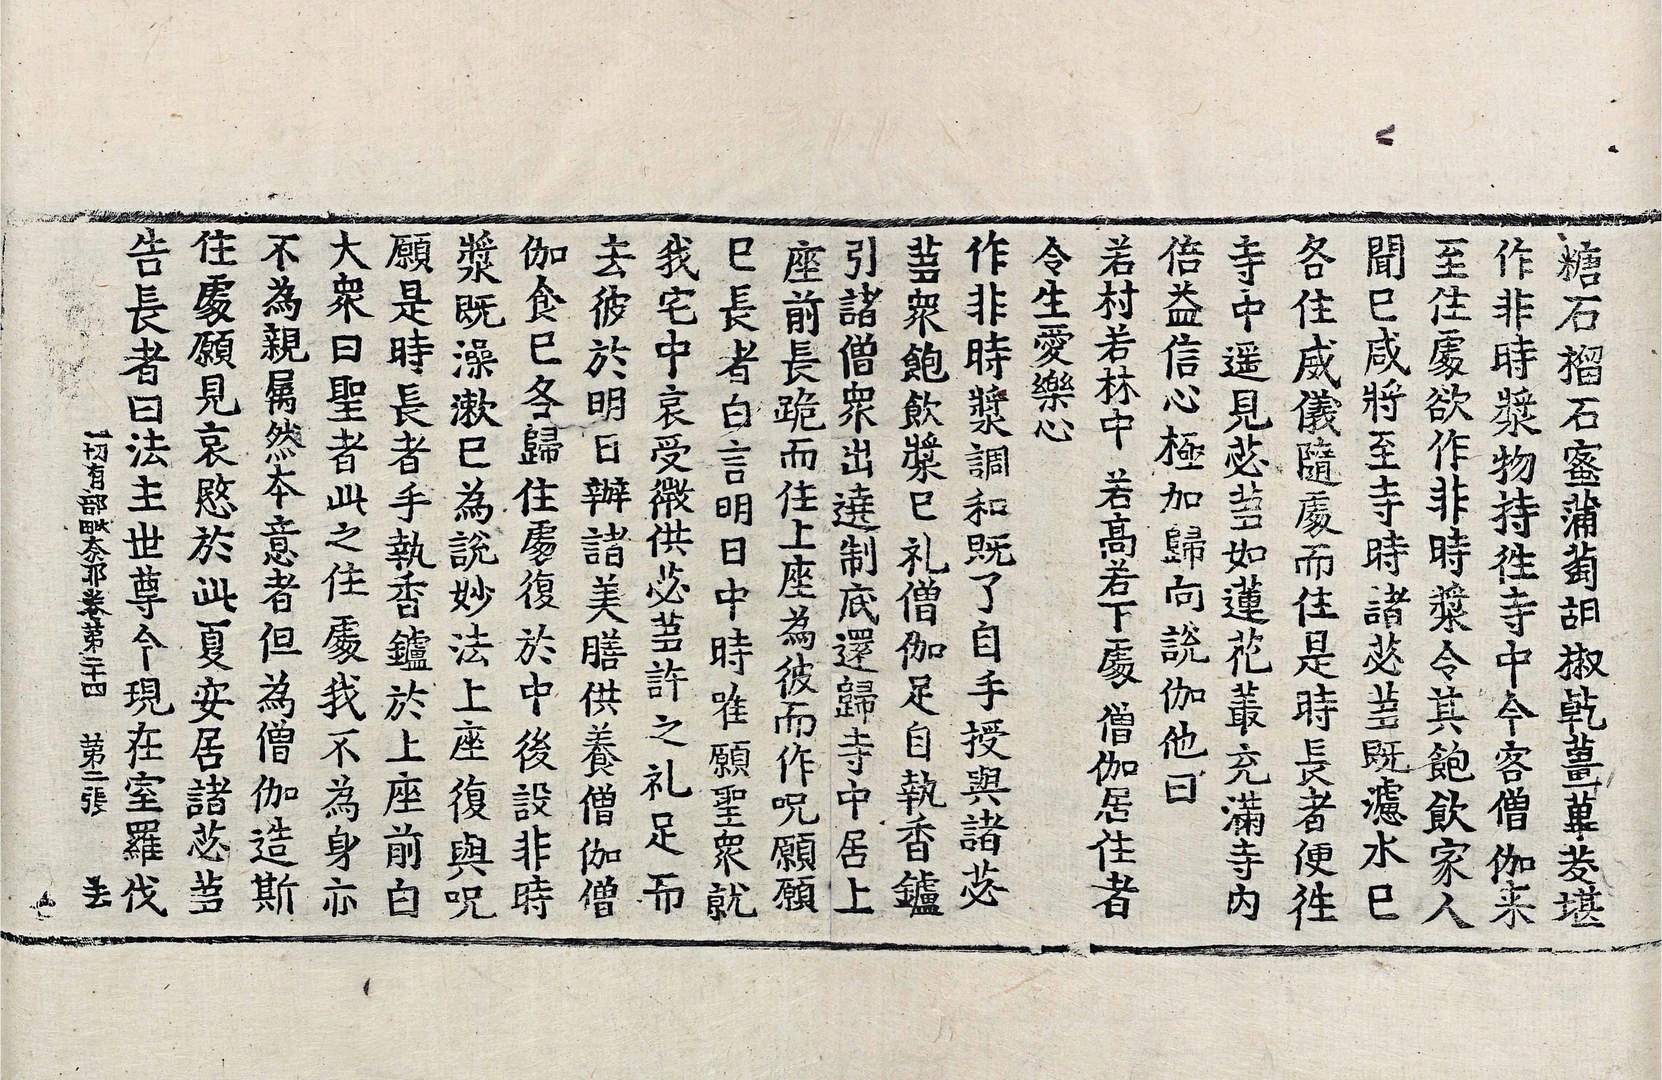 糖石榴石蜜蒲萄胡椒乾薑蓽茇堪
作非時漿物持徃寺中今客僧伽来
至住處欲作非時漿令其飽飲家人
聞巳咸將至寺時諸苾芻既濾水巳
各住威儀隨處而住是時長者便徃
寺中遥見苾芻如蓮花叢充滿寺内
倍益信心極加歸向說伽他曰
若村若林中　若髙若下處　僧伽居住者
令生愛樂心
作非時漿調和既了自手授與諸苾
芻衆飽飲漿巳礼僧伽足自執香鑪
引諸僧衆出遶制底還歸寺中居上
座前長跪而住上座為彼而作呪願願
巳長者白言明日中時唯願聖衆就
我宅中哀受微供苾芻許之礼足而
去彼於明日辦諸美膳供養僧伽僧
伽食巳各歸住處復於中後設非時
漿既澡漱巳為說妙法上座復與呪
願是時長者手執香鑪於上座前白
大衆曰聖者此之住處我不為身亦
不為親屬然本意者但為僧伽造斯
住處願見哀愍於此夏安居諸苾芻
告長者曰法主世尊今現在室羅伐
一切有部毗奈耶卷第二十四　第二張　去